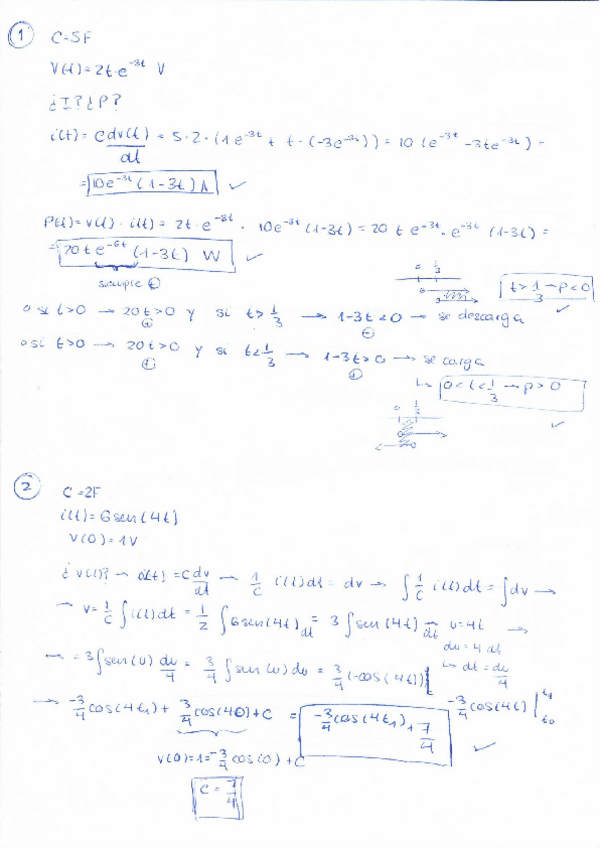 1 C-5F
V(t)=2t·e^-3t V
¿I? ¿P?
i(t)= C dv(t)/dt = 5·2·(1e^-3t + t·(-3e^-3t)) = 10(e^-3t -3te^-3t) -
= 10e^-3t(1-3t) A ✓
P(t)=v(t)·i(t)= 2t·e^-3t · 10e^-3t(1-3t) = 20 t e^-3t·e^-3t (1-3t) =
= 20te^-6t (1-3t) W ✓
siempre +
0 1/3
t>1/3 → P<0 ✓
o si t>0 → 20t>0 y si t>1/3 → 1-3t<0 → se descarga
+ -
o si t>0 → 20t>0 y si t<1/3 → 1-3t>0 → se carga
+ +
↳ 0<t<1/3 → P>0 ✓
0 1/3
2 C=2F
i(t)=6sen(4t)
V(0)=1V
¿v(t)? → i(t)=C dv/dt → 1/C i(t)dt = dv → ∫1/C i(t)dt = ∫dv →
→ v=1/C ∫i(t)dt = 1/2 ∫6sen(4t)dt = 3∫sen(4t)dt → u=4t →
du=4dt
↳ dt=du/4
→ =3∫sen(u) du/4 = 3/4 ∫sen(u)du = 3/4(-cos(4t))|
-3/4cos(4t)|t1 t0
→ -3/4cos(4t1)+3/4cos(4·0)+C = -3/4cos(4t1)+7/4 ✓
v(0)=1=-3/4cos(0)+C
C=7/4